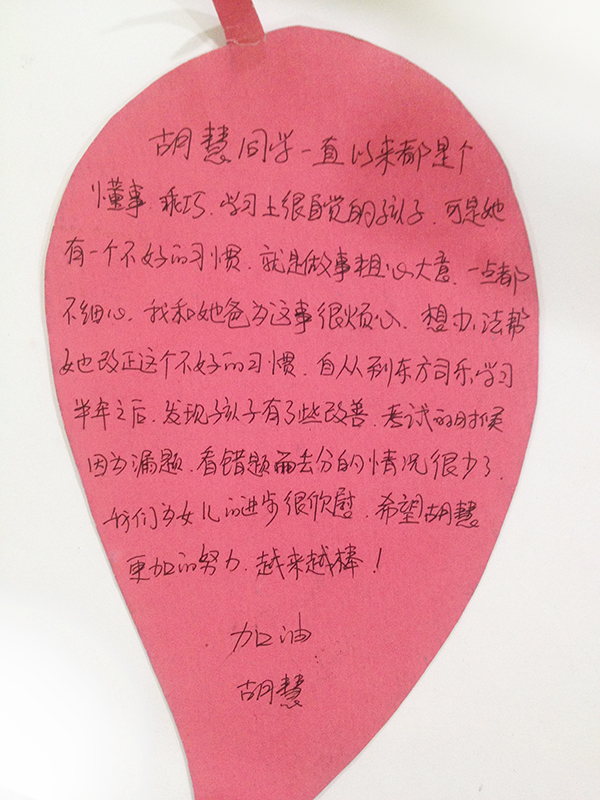 胡慧同学一直以来都是个
懂事.乖巧.学习上很自觉的孩子.可是她
有一个不好的习惯.就是做事粗心大意.一点都
不细心.我和她爸为这事很烦心.想办法帮
她改正这个不好的习惯.自从到东方司乐学习
半年之后.发现孩子有了些改善.考试的时候
因为漏题.看错题而丢分的情况很少了.
我们为女儿的进步很欣慰.希望胡慧
更加的努力.越来越棒!
加油
胡慧